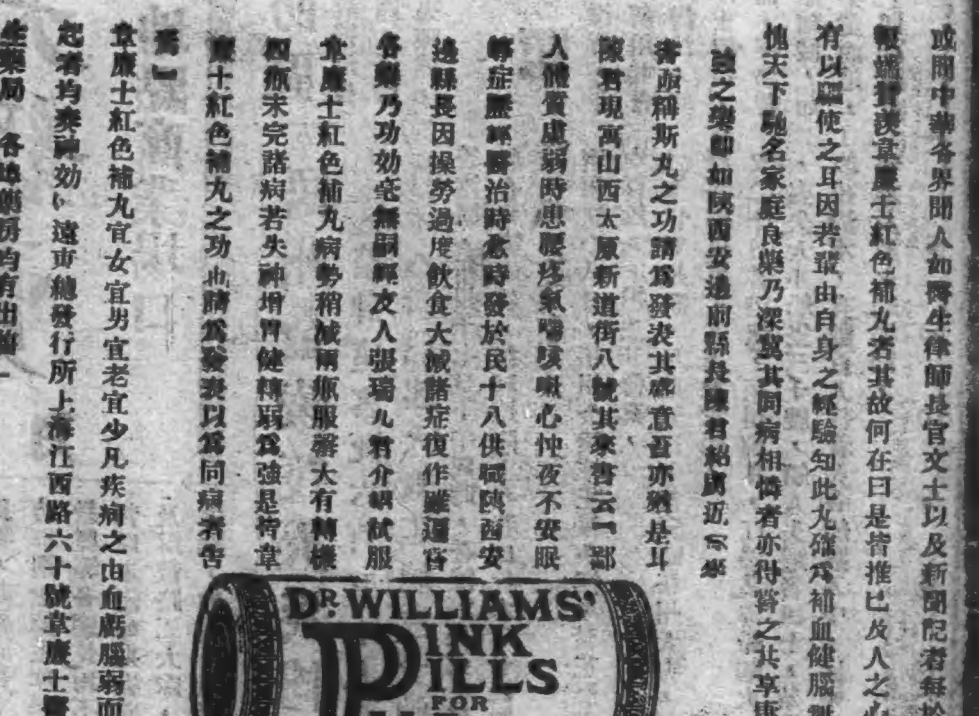 或問中華各界聞人如醫生律師長官文士以及新聞記者每於
報端贊美韋廉士紅色補丸者其故何在曰是皆推己及人之心
有以驅使之耳因若輩由自身之經驗知此丸確為補血健腦
愧天下馳名家庭良藥乃深冀其同病相憐者亦得嘗之共享康
之樂即如陝西安邊前縣長陳君紹 近寄
書面稱斯丸之功請為發表其盛意吾亦猶是耳
陳君現寓山西太原新道街八號其來書云「鄙
人體質虛弱時患腰疼氣喘咳嗽心忡夜不安眠
等症歷經醫治時愈時發於民十八供職陝西安
邊縣長因操勞過度飲食大減諸症復作雖遍嘗
各藥乃功効毫無嗣經友人張瑞九君介紹試服
韋廉士紅色補丸病勢稍減兩瓶服罄大有轉機
四瓶未完諸病若失神增胃健轉弱為強是皆韋
廉士紅色補丸之功也請為發表以為同病者告
焉」
韋廉士紅色補丸宜女宜男宜老宜少凡疾病之由血虧腦弱而
起者均奏神効 遠東總發行所上海江西路六十號韋廉士醫
生藥局 各地藥房均有出售
DR. WILLIAMS'
PINK
PILLS
FOR